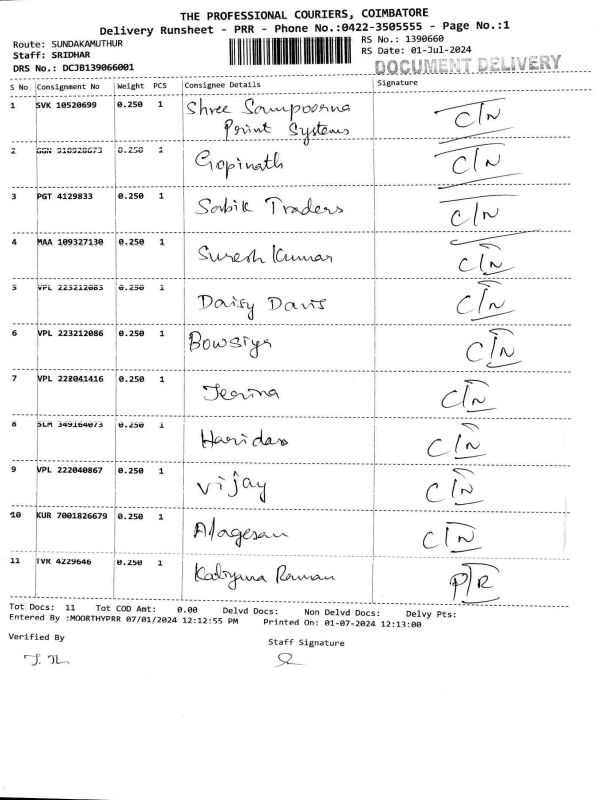 THE PROFESSIONAL COURIERS, COIMBATORE
Delivery Runsheet - PRR - Phone No.:0422-3505555 - Page No.:1
Route: SUNDAKAMUTHUR
RS No.: 1390660
Staff: SRIDHAR
RS Date: 01-Jul-2024
DRS No.: DCJB139066001
DOCUMENT DELIVERY
S No Consignment No Weight PCS Consignee Details Signature
1 SVK 10520699 0.250 1 Shree Sampoorna C/N
Print Systems
2 0.250 1 Gopinath C/N
3 PGT 4129833 0.250 1 Sabik Traders C/N
4 MAA 109327130 0.250 1 Suresh Kumar C/N
5 VPL 223212083 0.250 1 Daisy Davis C/N
6 VPL 223212086 0.250 1 Bowsiya C/N
7 VPL 222041416 0.250 1 C/N
8 SLM 349164073 0.250 1 Haridass C/N
9 VPL 222040867 0.250 1 Vijay C/N
10 KUR 7001826679 0.250 1 Alagesan C/N
11 TVR 4229646 0.250 1 Kalyana Raman P/R
Tot Docs: 11 Tot COD Amt: 0.00 Delvd Docs: Non Delvd Docs: Delvy Pts:
Entered By :MOORTHYPRR 07/01/2024 12:12:55 PM Printed On: 01-07-2024 12:13:00
Verified By Staff Signature